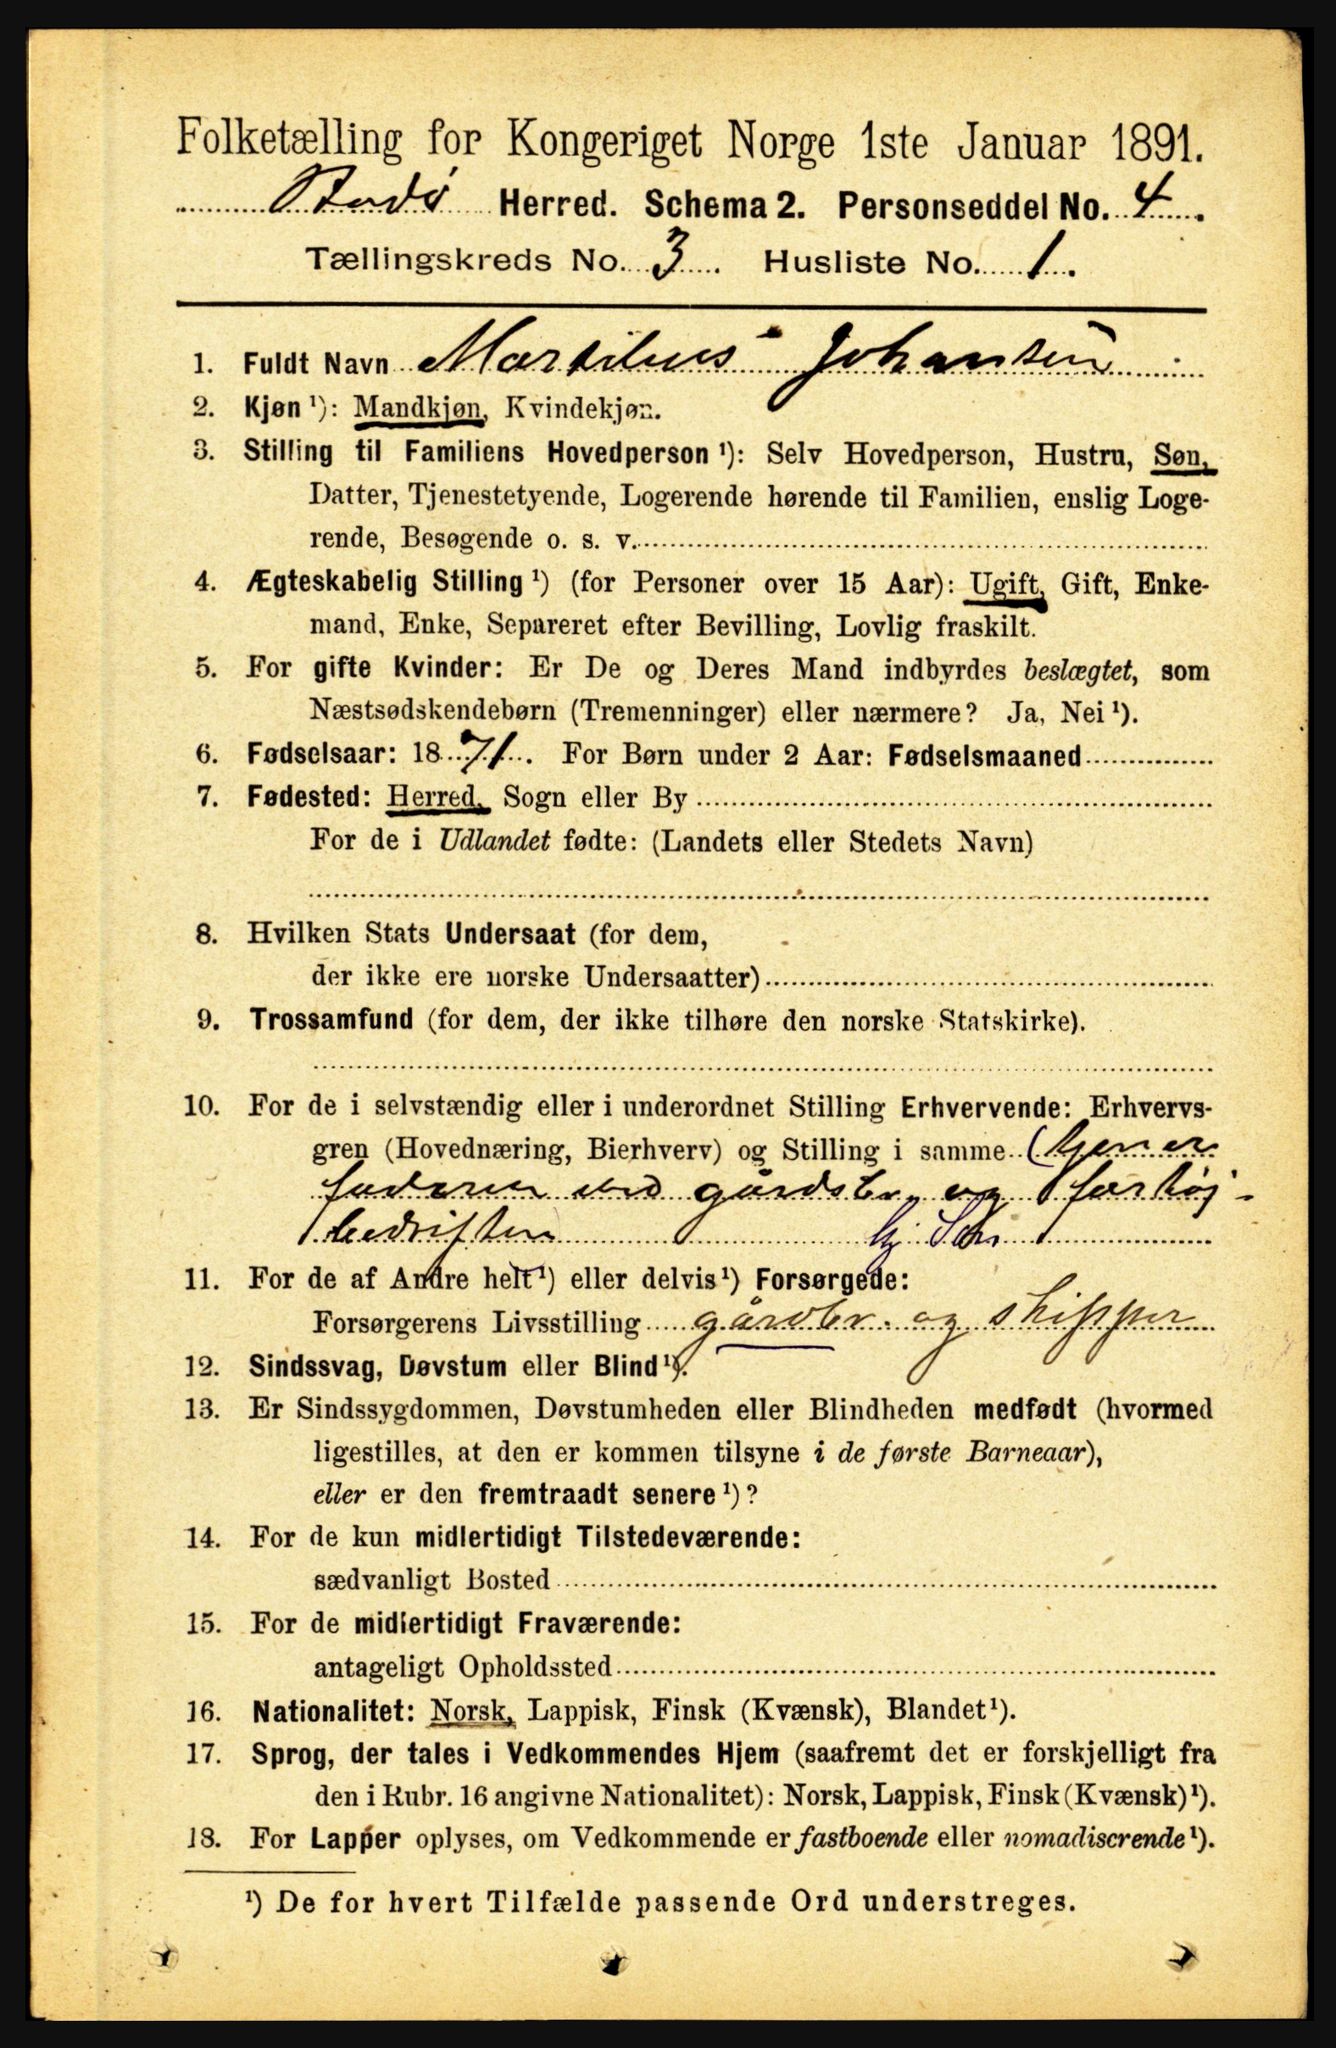 Folketælling for Kongeriget Norge 1ste Januar 1891.
Stadø Herred. Schema 2. Personseddel No. 4.
Tællingskreds No. 3. Husliste No. 1.
1. Fuldt Navn Martilius Johansen
2. Kjøn ¹): Mandkjøn, Kvindekjøn.
3. Stilling til Familiens Hovedperson ¹): Selv Hovedperson, Hustru, Søn,
Datter, Tjenestetyende, Logerende hørende til Familien, enslig Loge-
rende, Besøgende o. s. v.
4. Ægteskabelig Stilling ¹) (for Personer over 15 Aar): Ugift, Gift, Enke-
mand, Enke, Separeret efter Bevilling, Lovlig fraskilt.
5. For gifte Kvinder: Er De og Deres Mand indbyrdes beslægtet, som
Næstsødskendebørn (Tremenninger) eller nærmere? Ja, Nei ¹).
6. Fødselsaar: 1871. For Børn under 2 Aar: Fødselsmaaned
7. Fødested: Herred, Sogn eller By
For de i Udlandet fødte: (Landets eller Stedets Navn)
8. Hvilken Stats Undersaat (for dem,
der ikke ere norske Undersaatter)
9. Trossamfund (for dem, der ikke tilhøre den norske Statskirke).
10. For de i selvstændig eller i underordnet Stilling Erhvervende: Erhvervs-
gren (Hovednæring, Bierhverv) og Stilling i samme (tjener
faderen ved gårdsbr. og fartøj-
bedriften
11. For de af Andre helt ¹) eller delvis ¹) Forsørgede:
Forsørgerens Livsstilling gårdbr. og skipper
12. Sindssvag, Døvstum eller Blind ¹).
13. Er Sindssygdommen, Døvstumheden eller Blindheden medfødt (hvormed
ligestilles, at den er kommen tilsyne i de første Barneaar),
eller er den fremtraadt senere ¹)?
14. For de kun midlertidigt Tilstedeværende:
sædvanligt Bosted
15. For de midlertidigt Fraværende:
antageligt Opholdssted
16. Nationalitet: Norsk, Lappisk, Finsk (Kvænsk), Blandet ¹).
17. Sprog, der tales i Vedkommendes Hjem (saafremt det er forskjelligt fra
den i Rubr. 16 angivne Nationalitet): Norsk, Lappisk, Finsk (Kvænsk) ¹).
18. For Lapper oplyses, om Vedkommende er fastboende eller nomadiserende ¹).
¹) De for hvert Tilfælde passende Ord understreges.